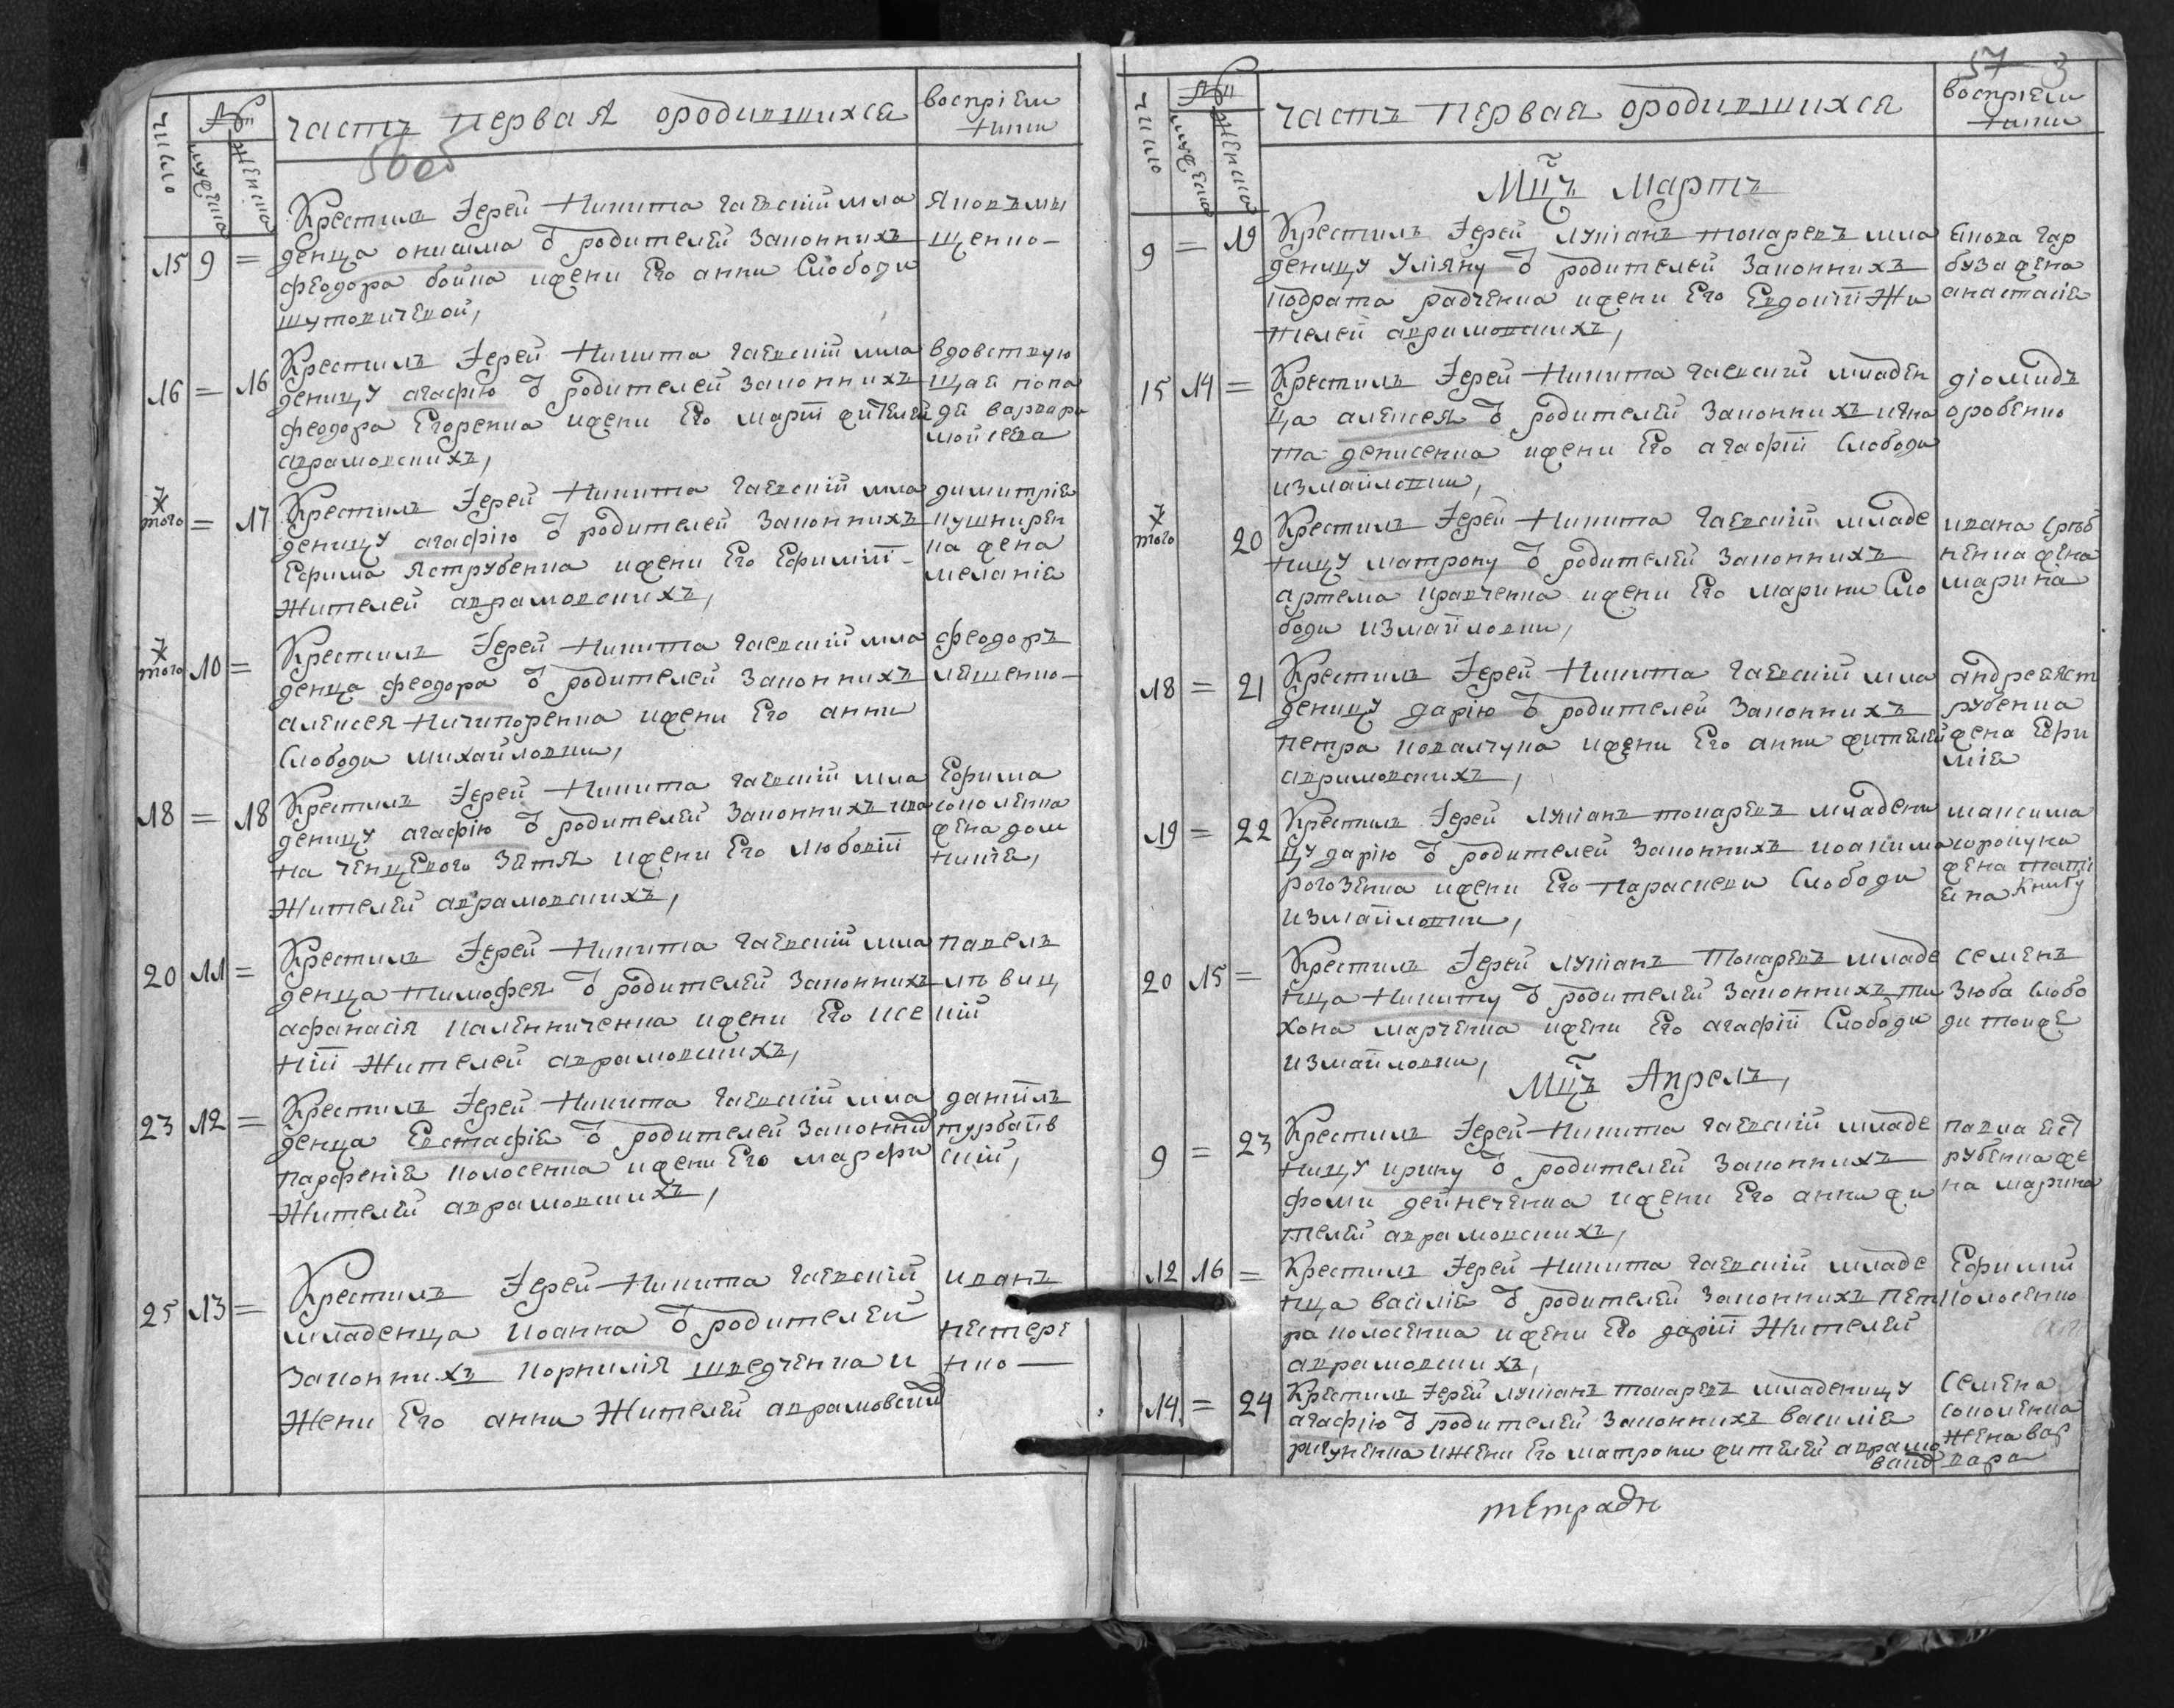 число
№
мужеска
женска
часть первая ородившихся
восприем
ники
56об
15 9 = Крестилъ Іерей Никита гаевскій мла
денца онисима ѿ родителей законнихъ
феодора бойка ижени Его анни Слободи
шутовичевой,
Яковъ ми
щенко
16 = 16 Крестилъ Іерей Никита гаевскій мла
деницу агафію ѿ родителей законнихъ
феодора Егоренка ижени Его марѣи жителей
аврамовскихъ,
вдовствую
щая попа
дя варвара
мойсева
тогож = 17 Крестилъ Іерей Никита гаевскій мла
деницу агафію ѿ родителей законнихъ
Ефима Яструбенка ижени Его Ефиміи
Жителей аврамовскихъ,
димитрія
кушнирен
ка жена
меланія
тогож 10 = Крестилъ Іерей Никита гаевскій мла
денца феодора ѿ родителей законнихъ
алексея Ничипоренка ижени Его анни
Слободи михайловки,
феодоръ
лященко
18 = 18 Крестилъ Іерей Никита гаевскій мла
деницу агафію ѿ родителей законнихъ ива
на ченцевого зятя ижени Его любовіи
Жителей аврамовскихъ,
Ефима
соколенка
жена дом
никія,
20 11 = Крестилъ Іерей Никита гаевскій мла
денца тимофея ѿ родителей законнихъ
афанасія каленниченка ижени Его ксе
ніи Жителей аврамовскихъ,
павелъ
лѣвиц
кій
23 12 = Крестилъ Іерей Никита гаевскій мла
денца Евстафія ѿ родителей законни
парфенія колосенка ижени Его марфи
Жителей аврамовкихъ,
даніилъ
турбаив
скій,
25 13 = Крестилъ Іерей Никита гаевскій
младенца иоанна ѿ родителей
законнихъ корнилія шведченка и
Жени Его анни Жителей аврамовский
иванъ
нестере
нко
57 3
число
№
мужеска
женска
часть первая ородившихся
восприем
ники
Мцъ Мартъ
9 = 19 Крестилъ Іерей лукіанъ токаревъ мла
деницу уліяну ѿ родителей законнихъ
кодрата радченка ижени Его Евдокіи Жи
телей аврамовскихъ,
якова гар
буза жена
анастасія
15 14 = Крестилъ Іерей Никита гаевский младен
ца алексея ѿ родителей законнихъ игна
та денисенка ижени Его агафіи Слободи
измайловки,
діомидъ
оробенко
тогож 20 Крестилъ Іерей Никита гаевскій младе
ницу матрону ѿ родителей законнихъ
артема кравченка ижени Его марини Сло
боди измайловки,
ивана
жена
марина
18 = 21 Крестилъ Іерей Никита гаевскій мла
деницу дарію ѿ родителей законнихъ
петра ковалчука ижени Его анни жителей
аврамовскихъ,
андреяяст
рубенка
жена Ефи
мія
19 = 22 Крестилъ Іерей лукіанъ токаревъ младени
цу дарію ѿ родителей законнихъ иоакима
рогозенка ижени Его параскеви Слободи
измайловки,
максима
сорокуна
жена татіа
яна
20 15 = Крестилъ Іерей лукіанъ токаревъ младе
нца никиту ѿ родителей законнихъ ти
хона марченка ижени Его агафіи Слободи
измайловки,
семенъ
зюба слобо
ди тоиже
Мцъ Апрель,
9 = 23 Крестилъ Іерей Никита гаевскій младе
ницу ирину ѿ родителей законнихъ
фоми дейнеченка ижени Его анни жи
телей аврамовскихъ,
павла яст
рубенка же
на марина
12 16 = Крестилъ Іерей Никита гаевскій младе
нца василія ѿ родителей законнихъ пет
ра колосенка ижени Его даріи Жителей
аврамовкихъ,
Ефимий
колосенко
14 = 24 Крестилъ Іерей лукіанъ токаревъ младеницу
агафію ѿ родителей законнихъ василія
ригуненка иЖени Его матрони жителей аврамо
вски
Семена
соколенка
Жена вар
вара
тетради